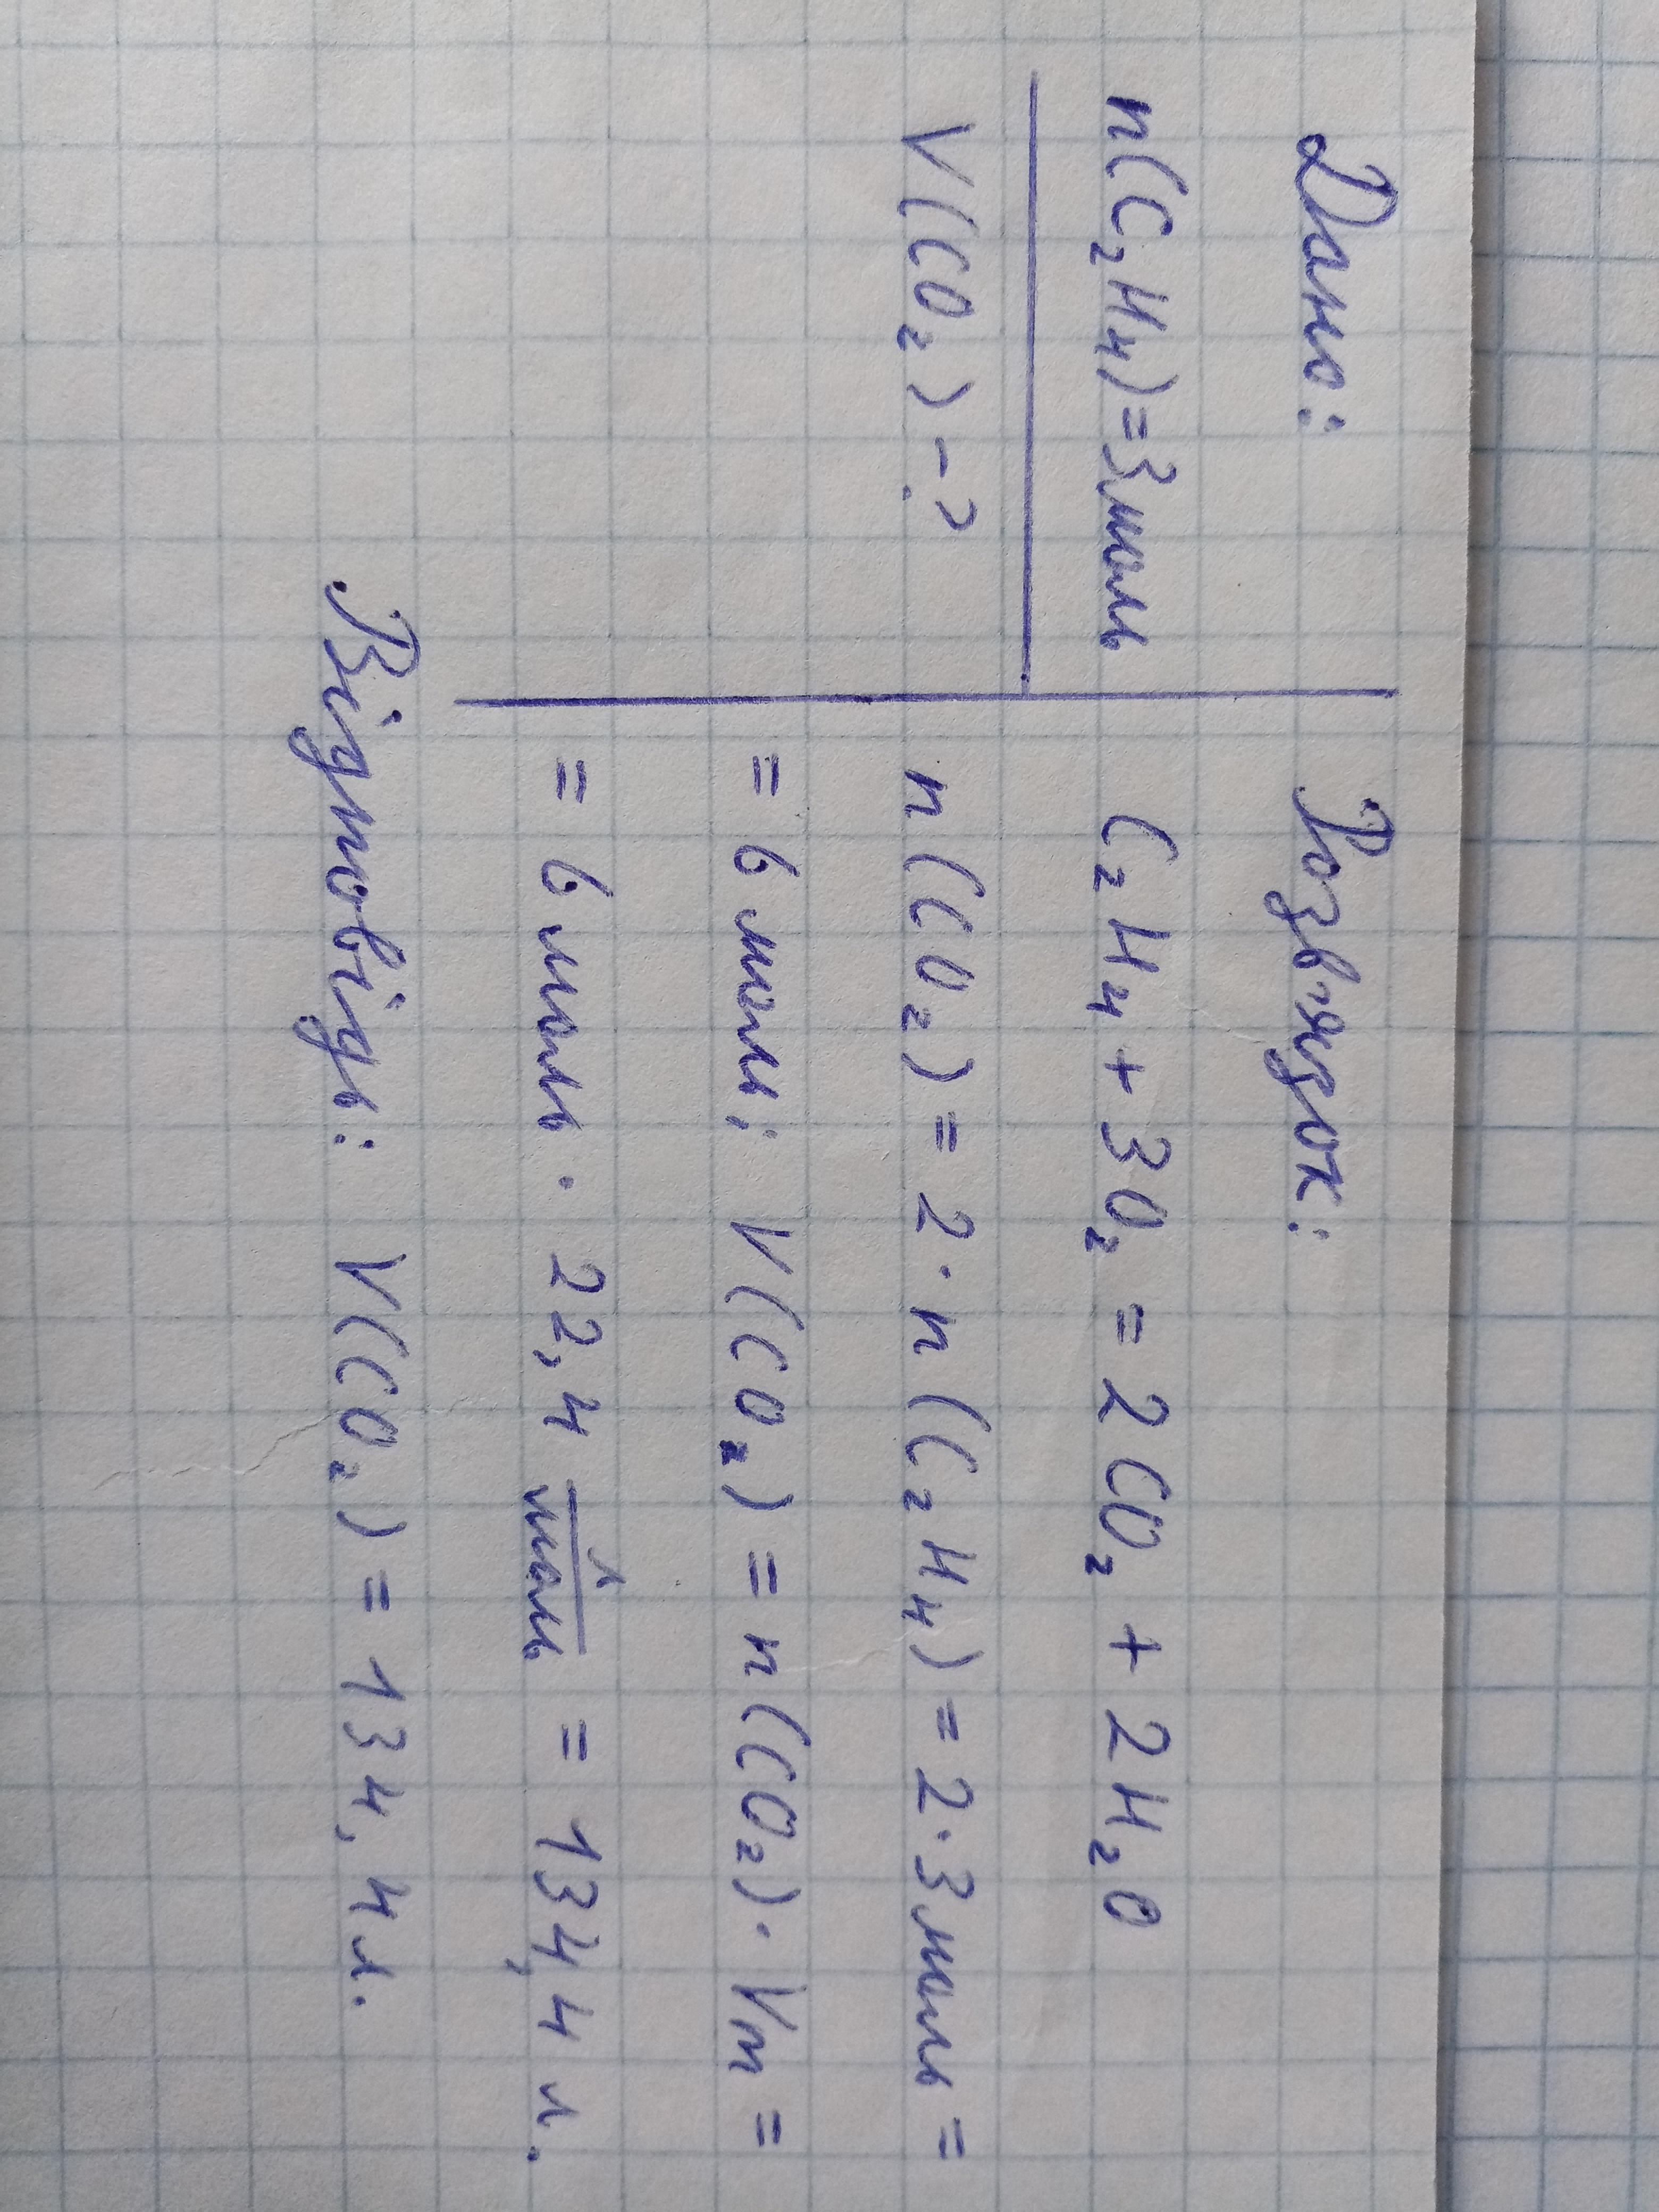 Дано:
n(C₂H₄)=3моль
V(CO₂) -?
Розв'язок:
C₂H₄ + 3O₂ = 2CO₂ + 2H₂O
n(CO₂) = 2·n(C₂H₄) = 2·3моль =
= 6 моль; V(CO₂) = n(CO₂)·Vm =
= 6 моль · 22,4 л/моль = 134,4 л.
Відповідь: V(CO₂) = 134,4 л.